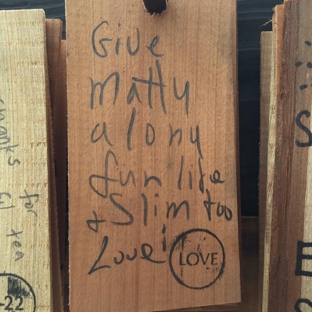 Give
Matty
a long
fun life
+ Slim too
Love
LOVE
thanks for
-22
S
E
S